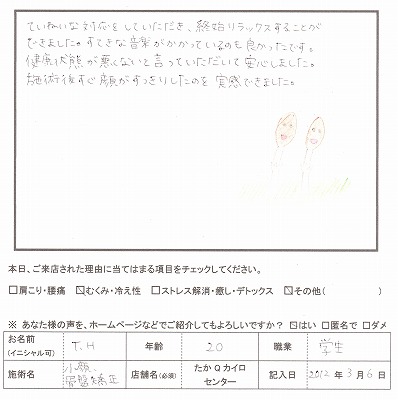 ていねいな対応をしていただき、終始リラックスすることが
できました。すてきな音楽がかかっているのも良かったです。
健康状態が悪くないと言っていただいて安心しました。
施術後すぐ顔がすっきりしたのを実感できました。
本日、ご来店された理由に当てはまる項目をチェックしてください。
□肩こり・腰痛 ☑むくみ・冷え性 □ストレス解消・癒し・デトックス ☑その他( )
※ あなた様の声を、ホームページなどでご紹介してもよろしいですか? ☑はい □匿名で □ダメ
お名前 (イニシャル可) T.H 年齢 20 職業 学生
施術名 小顔、骨盤矯正 店舗名(必須) たかQカイロセンター 記入日 2012年3月6日